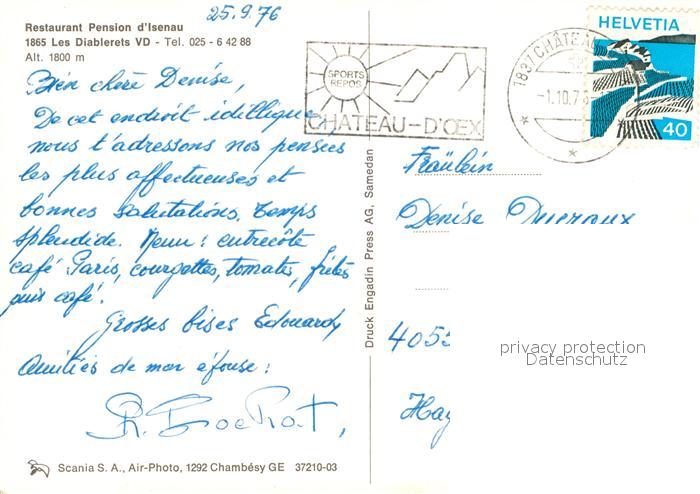 25.9.76
Restaurant Pension d'Isenau
1865 Les Diablerets VD - Tel. 025 - 6 42 88
Alt. 1800 m
Bien chère Denise,
De cet endroit idillique,
nous t'adressons nos pensées
les plus affectueuses et
bonnes salutations. Temps
splendide. Menu: entrecôte
café Paris, courgettes, tomates, frites
puis café.
Grosses bises Edouard,
Amitiés de mon épouse:
SPORTS
REPOS
CHATEAU-D'ŒX
1837 CHÂTEAU
-1.10.7
HELVETIA
40
Fräulein
Denise
4053
Druck Engadin Press AG, Samedan
privacy protection
Datenschutz
Scania S. A., Air-Photo, 1292 Chambésy GE 37210-03